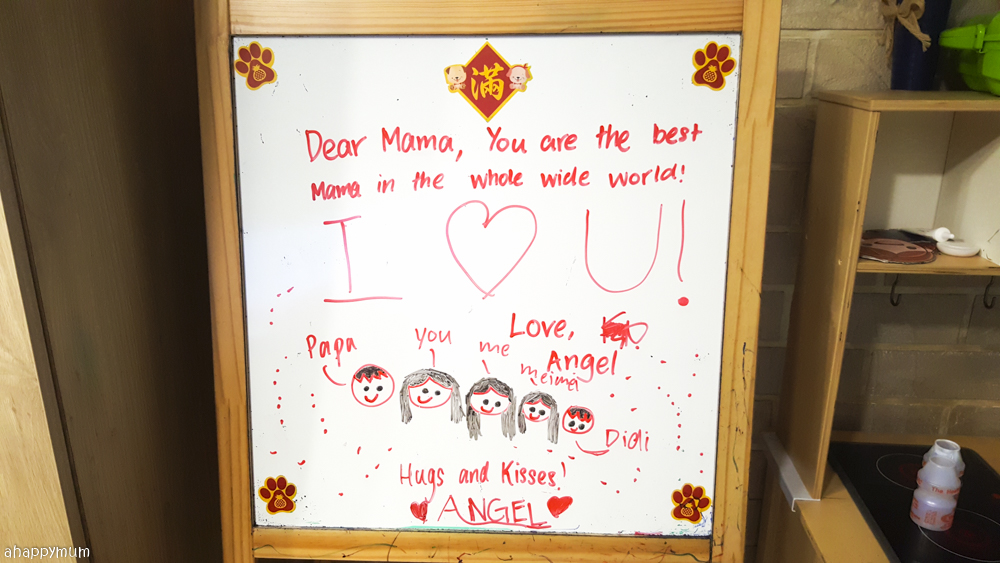 滿
Dear Mama, You are the best
Mama in the whole wide world!
I ♥ U!
Love,
Angel
Papa
you
me
meimei
Didi
Hugs and Kisses!
♥ ANGEL ♥
ahappymum